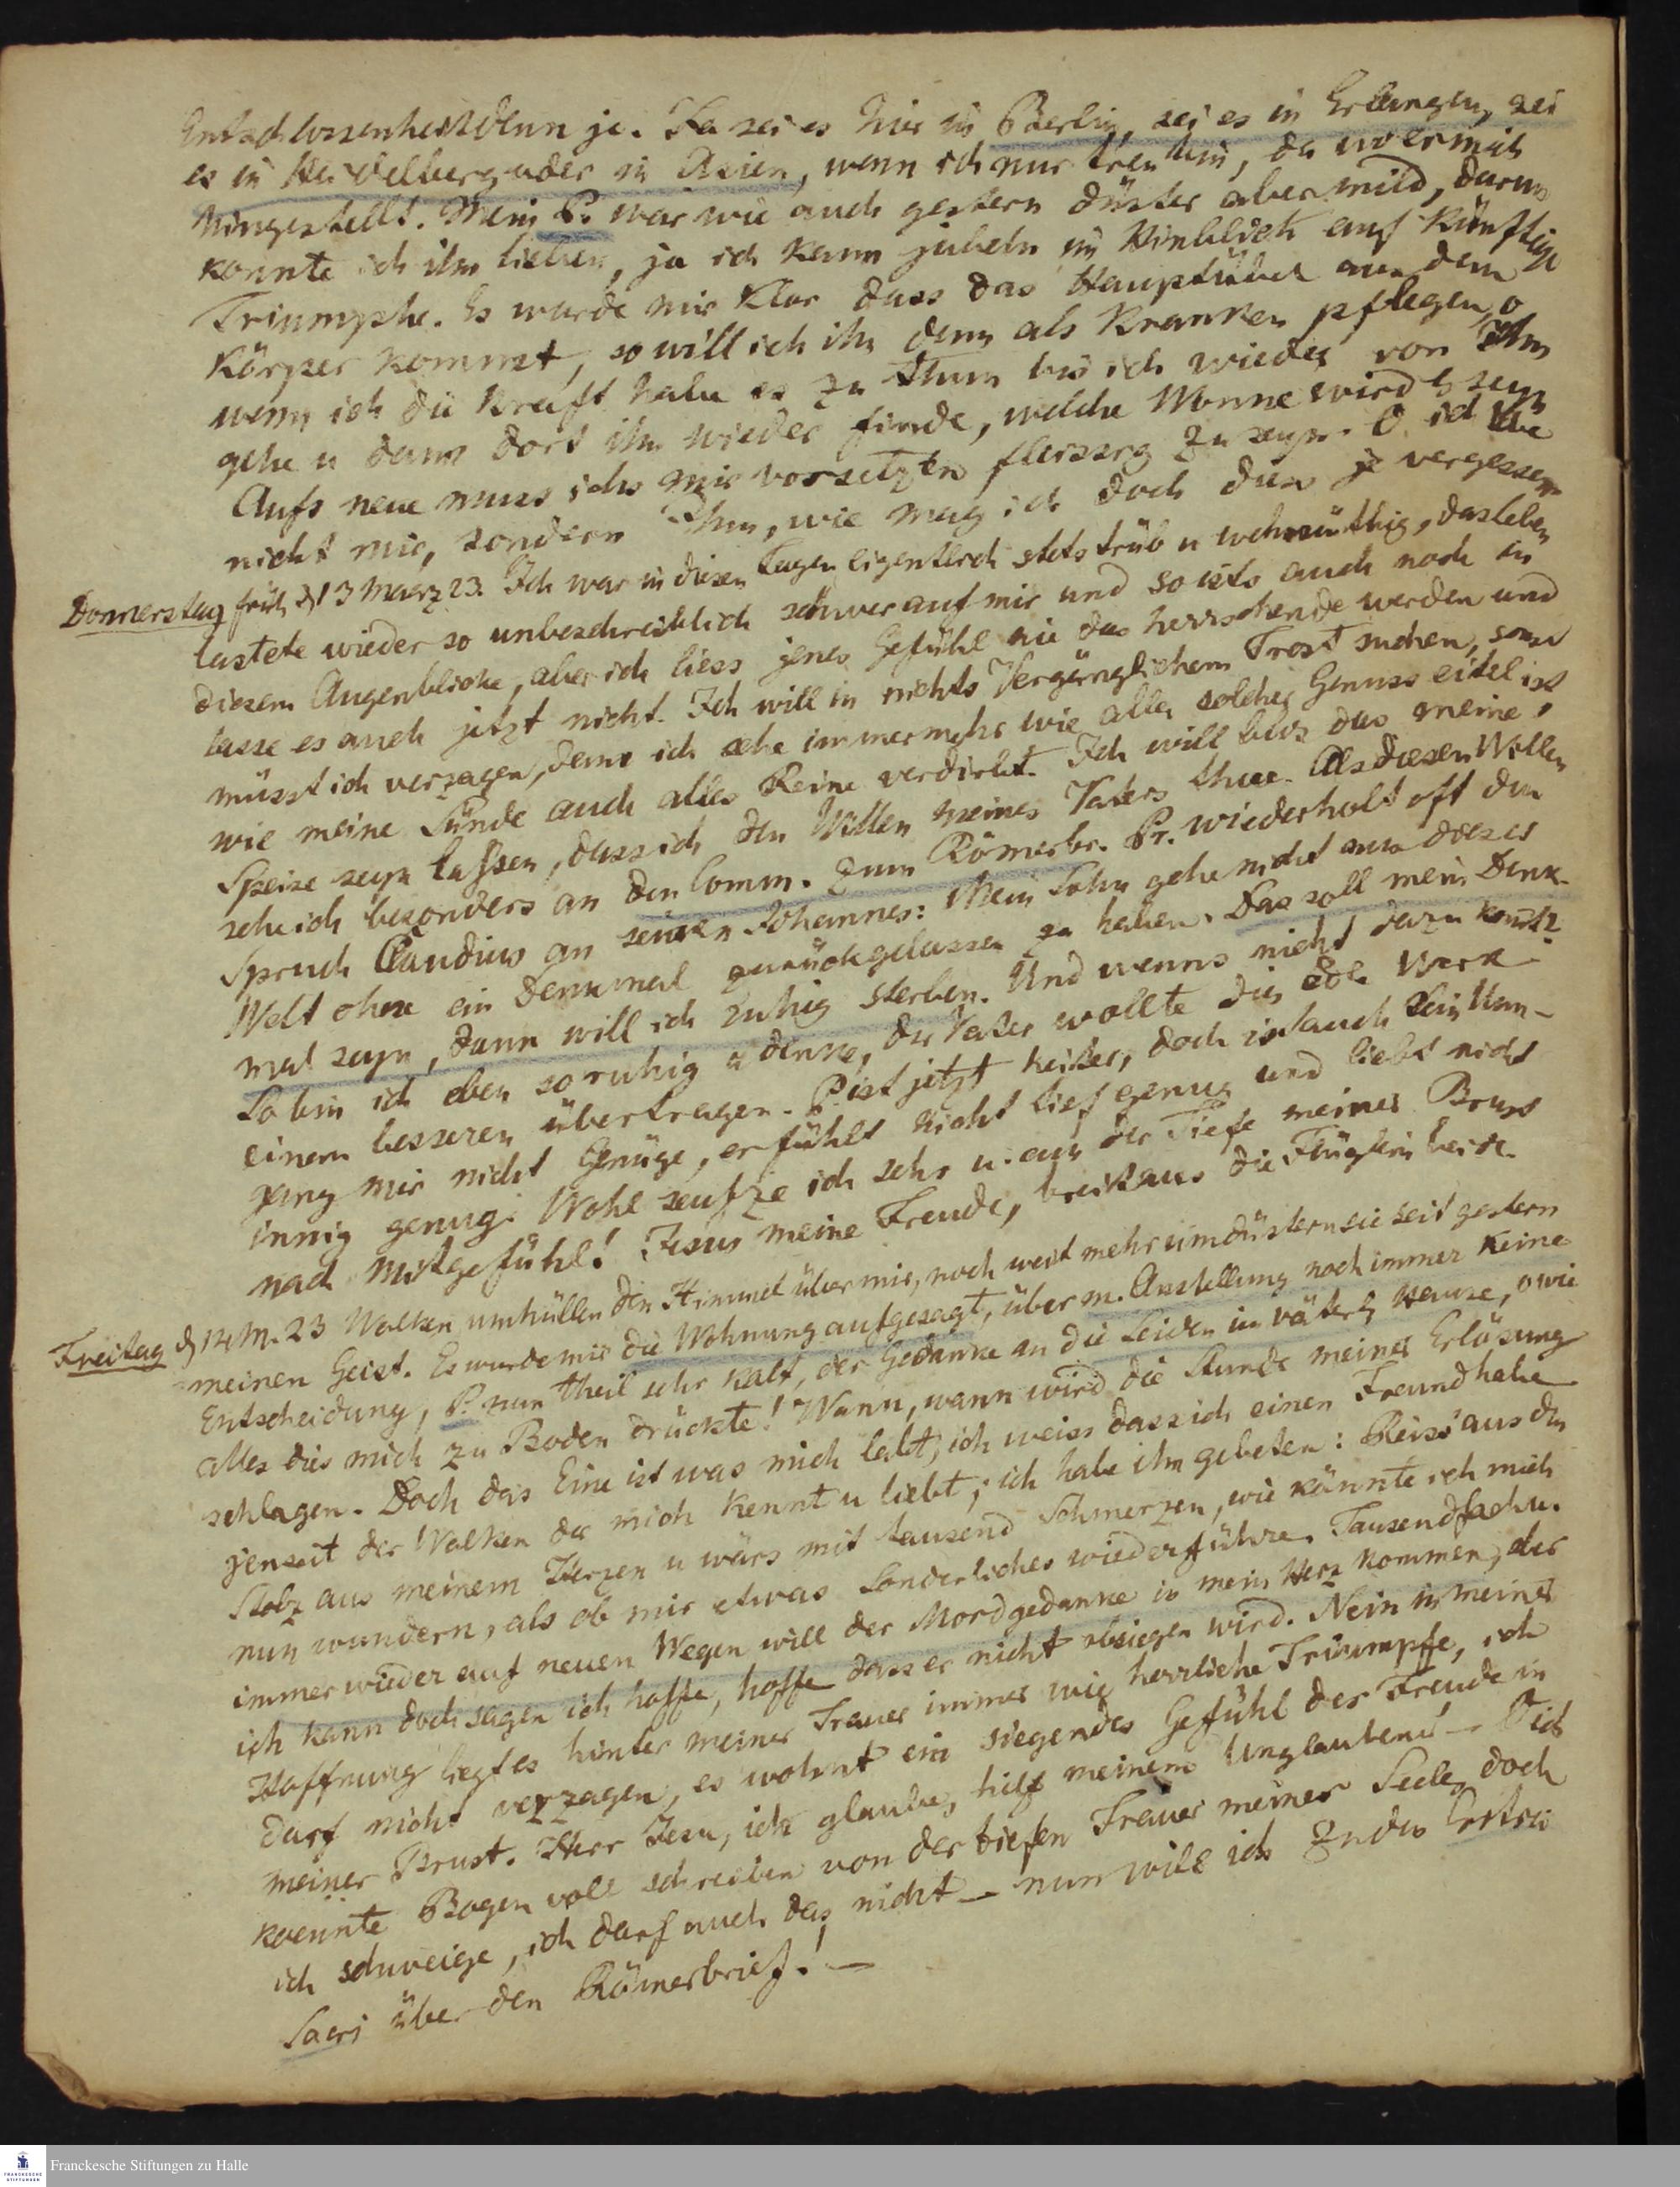 Entschlossenheit denn je. Ja sei es hier in Berlin, sei es in Erlangen, sei
es in Heidelberg oder in Asien, wenn ich nur treu bin, da wo er mich
hingestellt. Mein P. war wie auch gestern düster aber mild, darum
konnte ich ihn lieben, ja ich kann jubeln im Hinblick auf künftige
Triumphe. Es wurde mir klar dass das Hauptübel aus dem
Körper kommt, so will ich ihn denn als Kranken pflegen, o
wenn ich die Kraft habe es zu thun bis ich wieder von ihm
gehe u dann dort ihn wieder finde, welche Wonne wird es seyn
Aufs neue muss ichs mir vorsetzen fleissig zu seyn. O ich lebe
nicht mir, sondern Ihm, wie mag ich doch dies je vergessen
Donnerstag früh d 13 Maerz 23. Ich war in diesen Tagen eigentlich stets trüb u wehmüthig, das leben
lastete wieder so unbeschreiblich schwer auf mir und so ists auch noch in
diesem Augenblicke, aber ich liess jenes Gefühl nie das herrschende werden und
lasse es auch jetzt nicht. Ich will in nichts Vergänglichem Trost suchen, sonst
müsst ich verzagen, denn ich sehe immermehr wie aller solcher Genuss eitel ist
wie meine Sünde auch alles Reine verdirbt. Ich will bloz das meine
Speise seyn lassen, dass ich den Willen meines Vaters thue. Als diesen Willen
seh ich besonders an den Comm. zum Römerbr. Pr. wiederholt oft den
Spruch Claudius an seinen Johannes: Mein Sohn gehe nicht aus dieser
Welt ohne ein Denkmal zurückgelassen zu haben. Das soll mein Denk-
mal seyn, dann will ich ruhig sterben. Und wenns nicht dazu kommt
So bin ich eben so ruhig u denke, der Vater wollte dies edle Werk
einem besseren übertragen. P. ist jetzt heiter, doch ist auch sein Um-
gang mir nicht Genüge, er fühlt nicht tief genug und liebt nicht
innig genug. Wohl seufze ich sehr u. aus der Tiefe meiner Brust
nach Mitgefühl! Jesus meine Freude, breit aus die Flüglein beide.
Freitag d 14 M. 23 Wolken umhüllen den Himmel über mir, noch weit mehr umdüstern sie seit gestern
meinen Geist. Es wurde mir die Wohnung aufgesagt, über m. Anstellung noch immer keine
Entscheidung, P. zum theil sehr kalt, der Gedanke an die Leiden im väterl Hause, o wie
alles dies mich zu Boden drückte! Wann, wann wird die Stunde meiner Erlösung
schlagen. Doch das Eine ist was mich labt, ich weiss dass ich einen Freund habe
jenseit der Wolken der mich kennt u liebt; ich habe ihn gebeten: Reiss aus den
Stolz aus meinem Herzen u wärs mit tausend Schmerzen, wie könnte ich mich
nun wundern, als ob mir etwas Sonderliches wiederführe. Tausendfach u.
immer wieder auf neuen Wegen will der Mordgedanke in mein Herz kommen, aber
ich kann doch sagen ich hoffe, hoffe dass er nicht obsiegen wird. Nein in meiner
Hoffnung liegt es hinter meiner Trauer immer wie herrliche Triumpfe, ich
darf nicht verzagen, es wohnt ein siegendes Gefühl der Freude in
meiner Brust. Herr Jesu, ich glaube, hilf meinem Unglauben! — O ich
koennte Bogen voll schreiben von der tiefen Trauer meiner Seele, doch
ich schweige, ich darf auch das nicht — nun will ich zu den
Saeri über den Römerbrief! —
Franckesche Stiftungen zu Halle